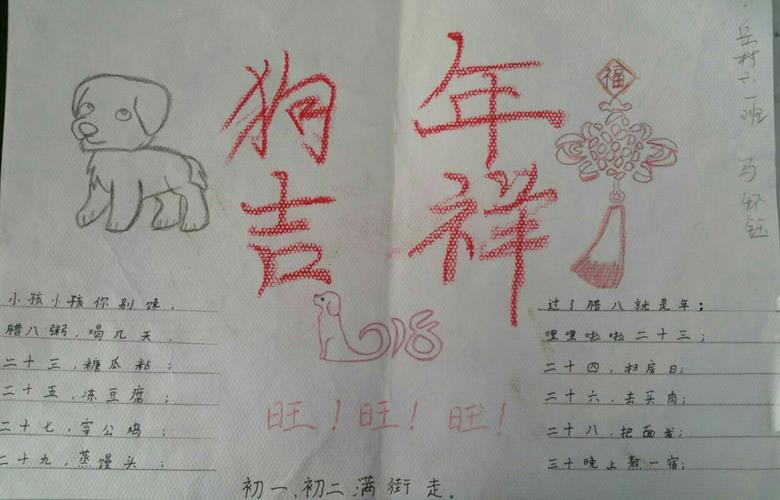 狗年
吉祥
福
岳村六一班 马
2018
旺！旺！旺！
小孩小孩你别馋，
过了腊八就是年；
腊八粥，喝几天，
哩哩啦啦二十三；
二十三，糖瓜粘；
二十四，扫房日；
二十五，冻豆腐；
二十六，去买肉；
二十七，宰公鸡；
二十八，把面发；
二十九，蒸馒头；
三十晚上熬一宿；
初一、初二满街走。